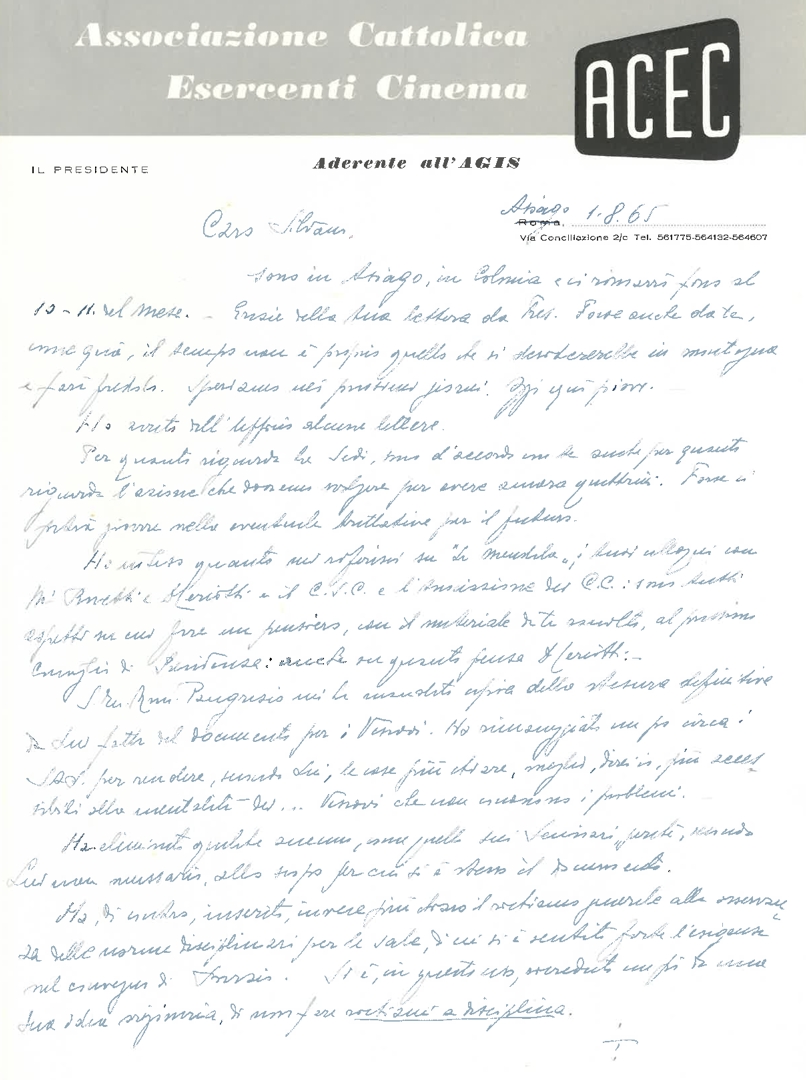 Associazione Cattolica
Esercenti Cinema
ACEC
IL PRESIDENTE
Aderente all'AGIS
Asiago 1.8.65
Roma,
Via Conciliazione 2/c Tel. 561775-564132-564607
Caro Silvano,
sono in Asiago, in Colonia e ci rimarrò fino al
10-11 del mese. - Grazie della tua lettera da Forse anche da te,
come qua, il tempo non è proprio quello che si desidererebbe in montagna
e farà freddo. Speriamo nei prossimi giorni. Oggi qui piove. -
Ho avuto dall'Ufficio alcune lettere.
Per quanto riguarda le Sedi, sono d'accordo con te anche per quanto
riguarda l'azione che dovremo svolgere per avere ancora quattrini. Forse ci
potrà giovare nelle eventuali trattative per il futuro.
Ho inteso quanto mi riferisci su i tuoi colloqui con
e il C.S.C. e dei C.C.: sono tutti
aspetti su cui fare un pensiero, con il materiale da te raccolto, al prossimo
Consiglio di Presidenza: anche su quanto pensa
mi ha mandato copia della stesura definitiva
da Lui fatta del documento per i Vescovi. Ha rimaneggiato un po circa i
per rendere, secondo Lui, le cose più chiare, meglio, direi io, più acces-
sibili alla mentalità dei... Vescovi che non conoscono i problemi. -
Ha eliminato qualche accenno, come quello sui Seminari, perché, secondo
Lui non necessario, allo scopo per cui si è steso il documento.
Ma, di contro, inserito, invece più chiaro il richiamo generale alla osservan-
za delle norme disciplinari per le sale, di cui si è sentito forte l'esigenza
nel convegno di Si è, in questo caso, receduto un pò da una
Sua idea originaria, di non fare richiami a disciplina.